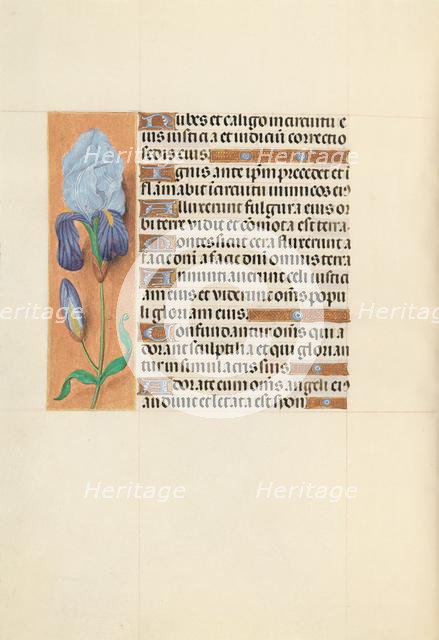 Nubes et caligo in circuitu e
ius iusticia et iudiciu correctio
sedis eius
Ignis ante ipm precedet et i
flamabit i circuitu inimicos ei9
Alluxerunt fulgura eius or
bi terre vidit et comota est terra
Montes sicut cera fluxerunt a
facie dni a facie dni omnis terra
Annuntiauerunt celi iusticia
am eius et viderunt omes popu
li gloriam eius
Confundantur omes qui a
dorant sculptilia et qui glorian
tur in simulacris suis
Adorate eum omes angeli ei9
audiuit et letata est syon
Heritage Images
Heritage Images
Heritage Images
Heritage Images
Heritage Images
Heritage Images